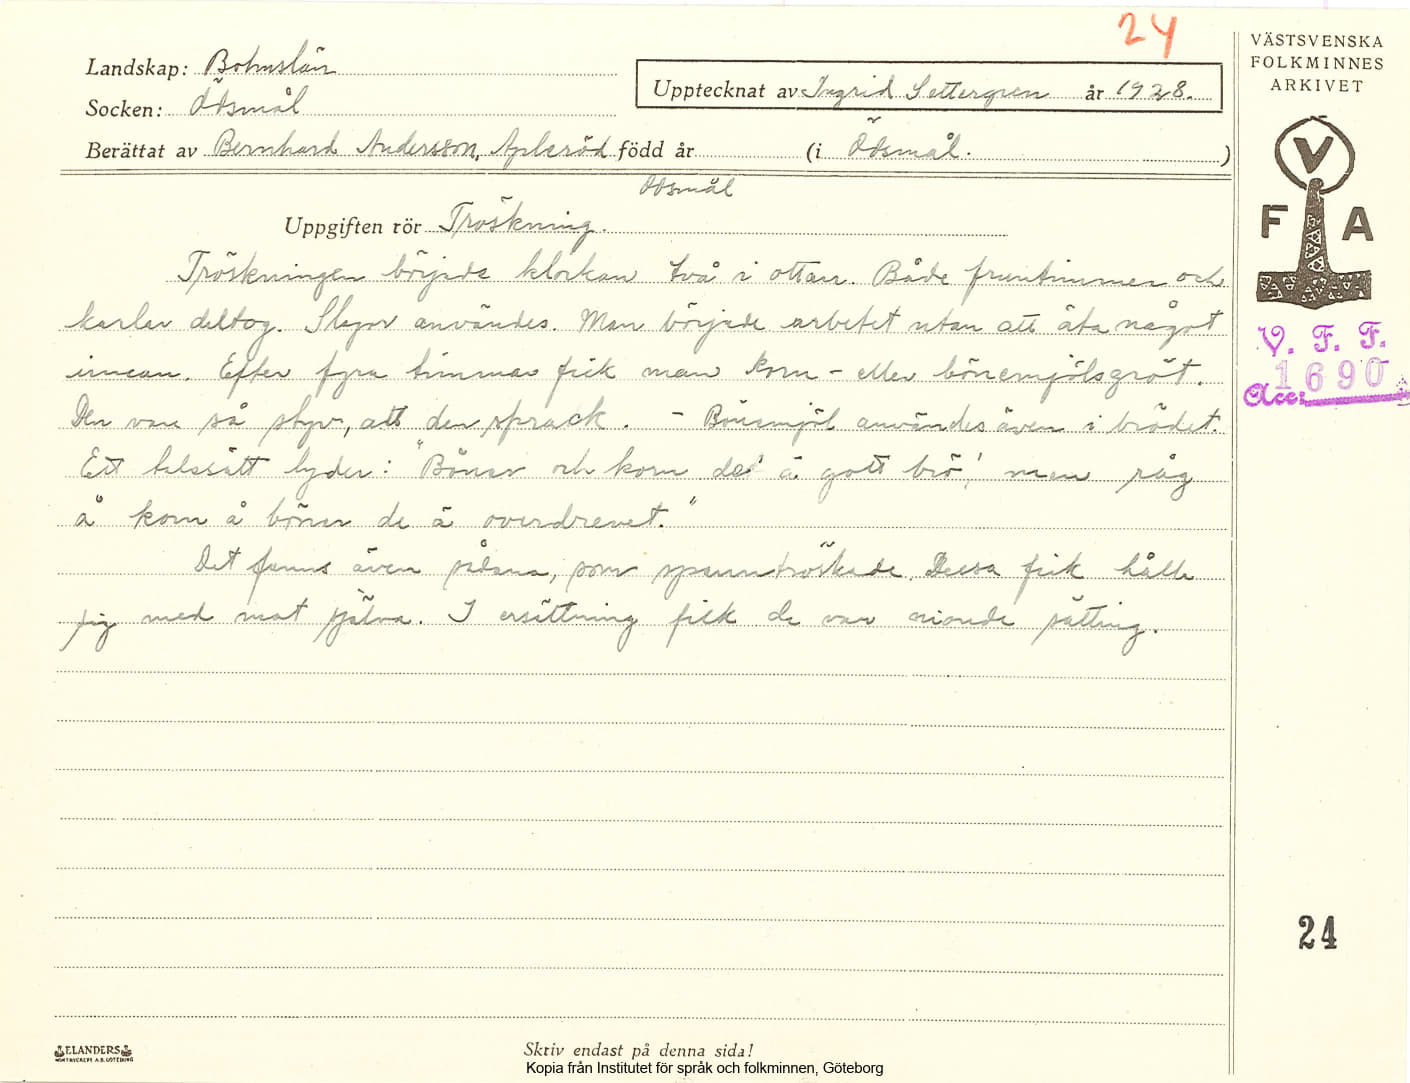 24
Landskap: Bohuslän
Socken: Ödsmål
Upptecknat av Ingrid Settergren år 1928.
Berättat av Bernhard Andersson, Apleröd född år (i Ödsmål. )
Ödsmål
Uppgiften rör Tröskning.
Tröskningen började klockan två i ottan. Både fruntimmer och
karlar deltog. Slagor användes. Man började arbetet utan att äta något
innan. Efter fyra timmar fick man korn- eller bönemjölsgröt.
Den var så styv, att den sprack. - Bönemjöl användes även i brödet.
Ett talesätt lyder: "Böner och korn de' ä gott brö', men råg
å korn å böner de ä overdrevet."
Det fanns även sådana, som spanntröskade. Dessa fick hålla
sig med mat själva. I ersättning fick de var nionde sätting.
VÄSTSVENSKA
FOLKMINNES
ARKIVET
V
F A
V. F. F.
Acc: 1690
24
ELANDERS
Skriv endast på denna sida!
Kopia från Institutet för språk och folkminnen, Göteborg